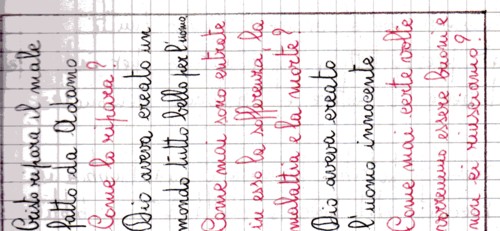 Cristo ripara il male
fatto da Adamo
Come lo ripara?
Dio aveva creato un
mondo tutto bello per l'uomo
Come mai sono entrate
in esso la sofferenza, la
malattia e la morte?
Dio aveva creato
l'uomo innocente
Come mai certe volte
vorremmo essere buoni e
non ci riusciamo?